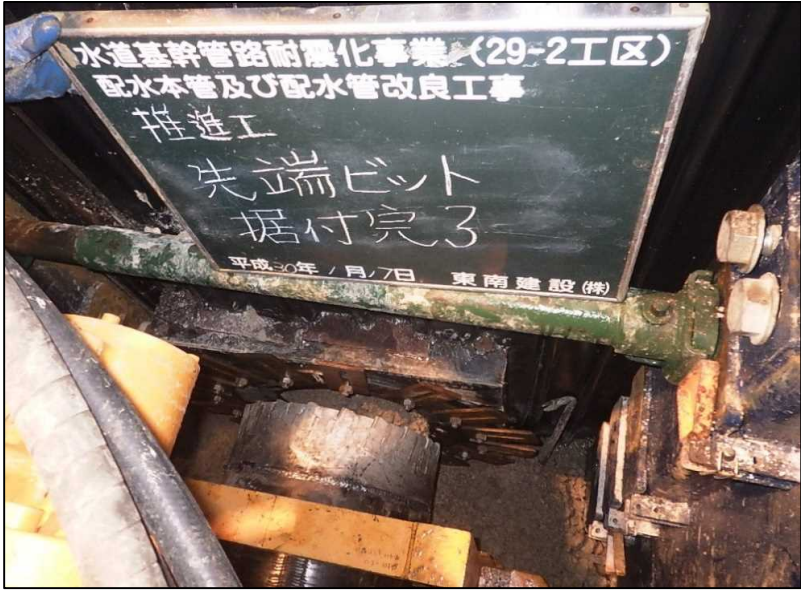 水道基幹管路耐震化事業(29-2工区)
配水本管及び配水管改良工事
推進工
先端ビット
据付完了
平成30年1月17日 東南建設(株)